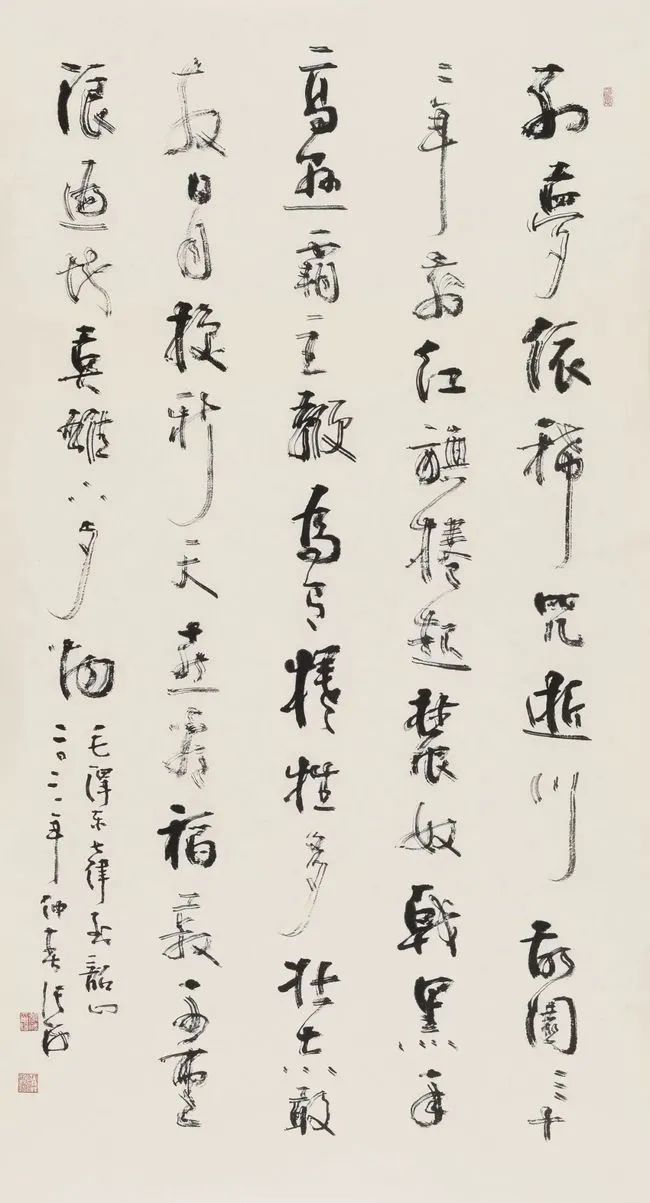 别夢依稀咒逝川故園三十
二年前红旗捲起農奴戟黑手
高懸霸主鞭為有犧牲多壮志敢
教日月换新天喜看稻菽千重
浪遍地英雄下夕烟
毛澤东七律到韶山
二〇二一年仲春